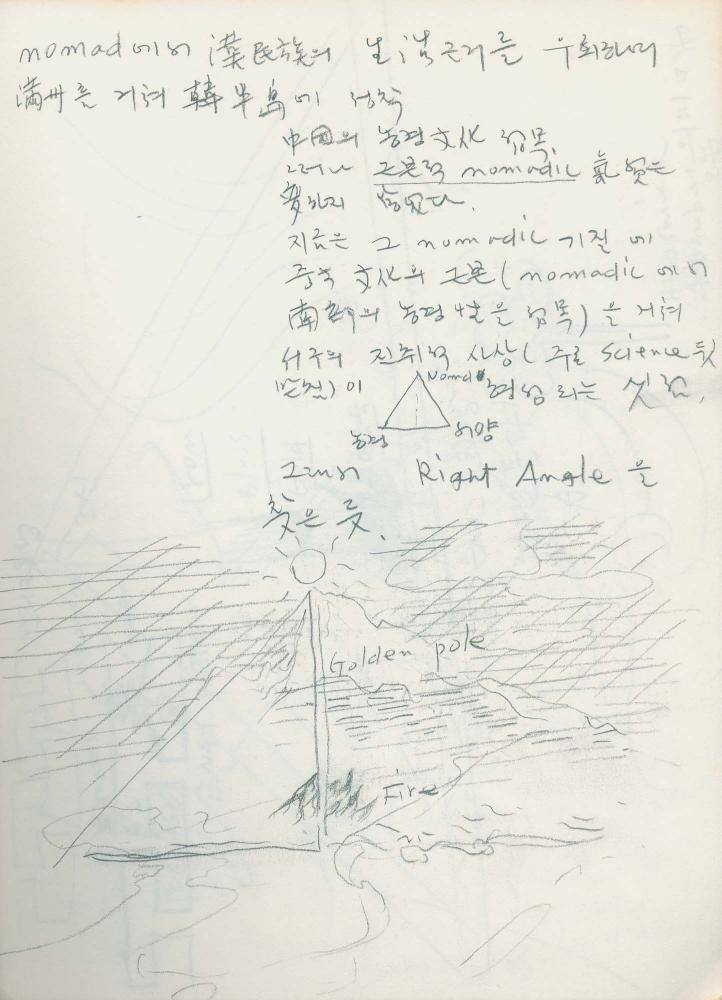 nomad에서 漢民族의 生活근거를 우회하며
満州를 거쳐 韓半島에 정착
中國의 농경文化 접목.
그러나 근본적 nomadic 氣質은
변하지 않았다.
지금은 그 nomadic 기질에
중국 文化의 근본(nomadic에서
南쪽의 농경性을 접목)을 거쳐
서구의 진취적 사상(주로 science 뜻
발전)이 형성되는 싯점.
Nomad
농경 서양
그래서 Right Angle을
찾은 듯.
Golden pole
Fire